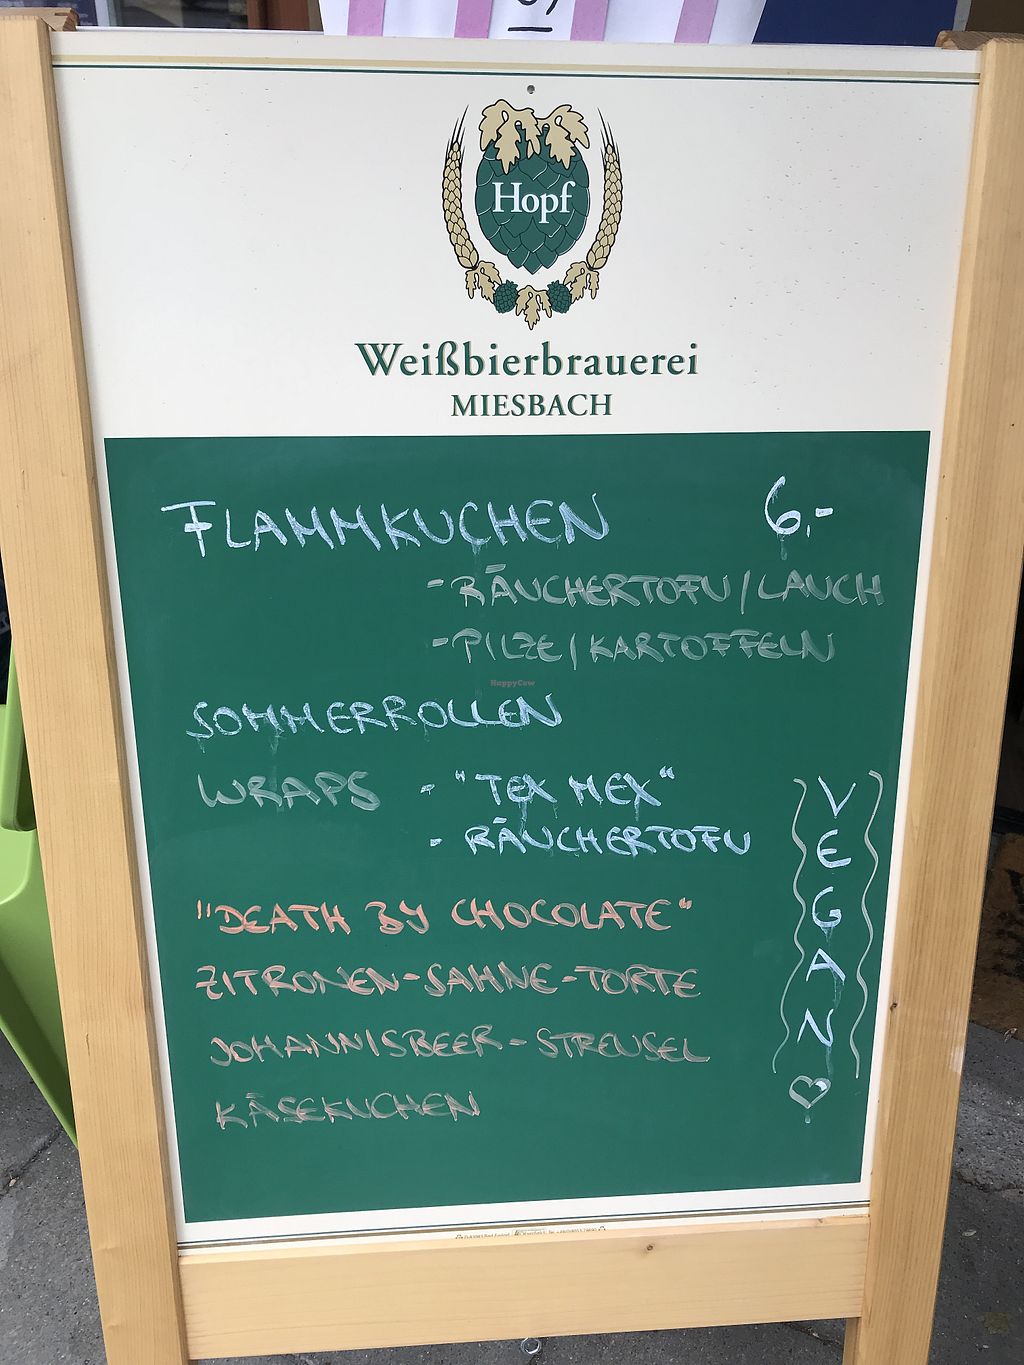 Hopf
Weißbierbrauerei
MIESBACH
FLAMMKUCHEN 6,-
- RÄUCHERTOFU / LAUCH
- PILZE / KARTOFFELN
HappyCow
SOMMERROLLEN
WRAPS - "TEX MEX"
- RÄUCHERTOFU
"DEATH BY CHOCOLATE"
ZITRONEN-SAHNE-TORTE
JOHANNISBEER-STREUSEL
KÄSEKUCHEN
VEGAN